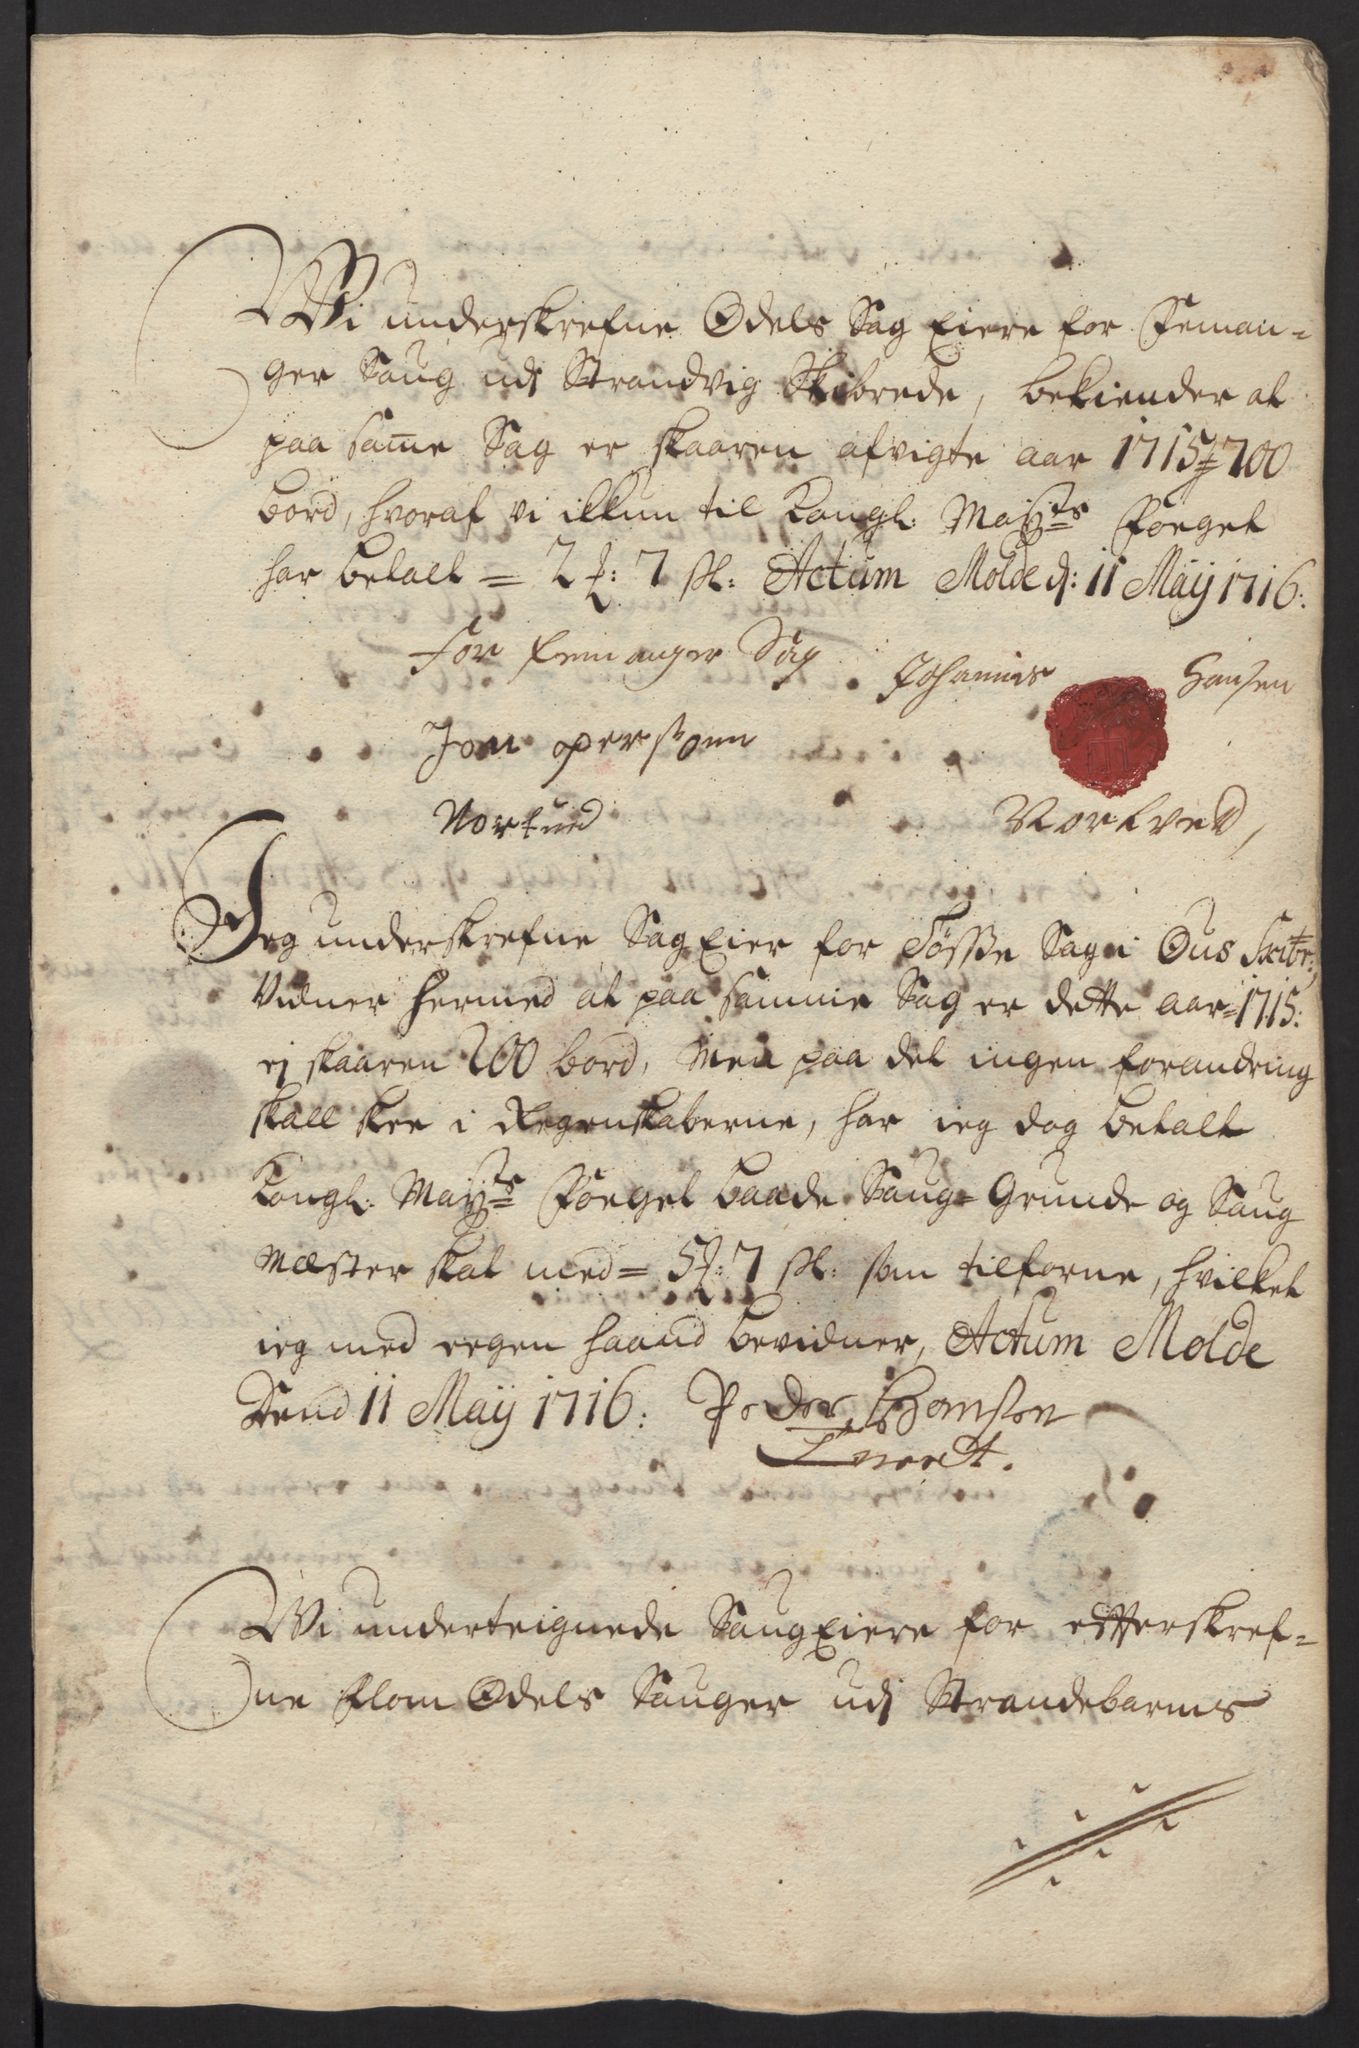 Wi underskrefne Odels Sag Eiere for Feman-
ger Saug udj Strandvig Skibrede, bekiender at
paa same Sag er skaaren afvigte aar 1715 = 700
bord, hvoraf vi ickun til Kongl: May:ts Foeget
har betalt = 2 7 sk: Actum Molde d: 11 Maÿ 1716:
For femanger Sag Johannis Hansen
Jon personn
Nortued Nortved,
Jeg underskrefne Sag Eier for Tøsse Sag i Ous Skibr:
Vidner hermed at paa samme Sag er dette aar = 1715:
ej skaaren 200 bord, Men paa det ingen forandring
skall skee i Regenskaberne, har ieg dog betalt
Kongl: May:ts Foeget baade Saug-Grunde og Saug
Mæster skat med = 5 7 sk: som tilforne, hvilket
ieg med eegen haand bevidner, Actum Molde
Dend 11 Maÿ 1716: Peder
Wi underteignede Saug Eiere for efterskref-
ne flom Odels Sauger udj Strandebarms